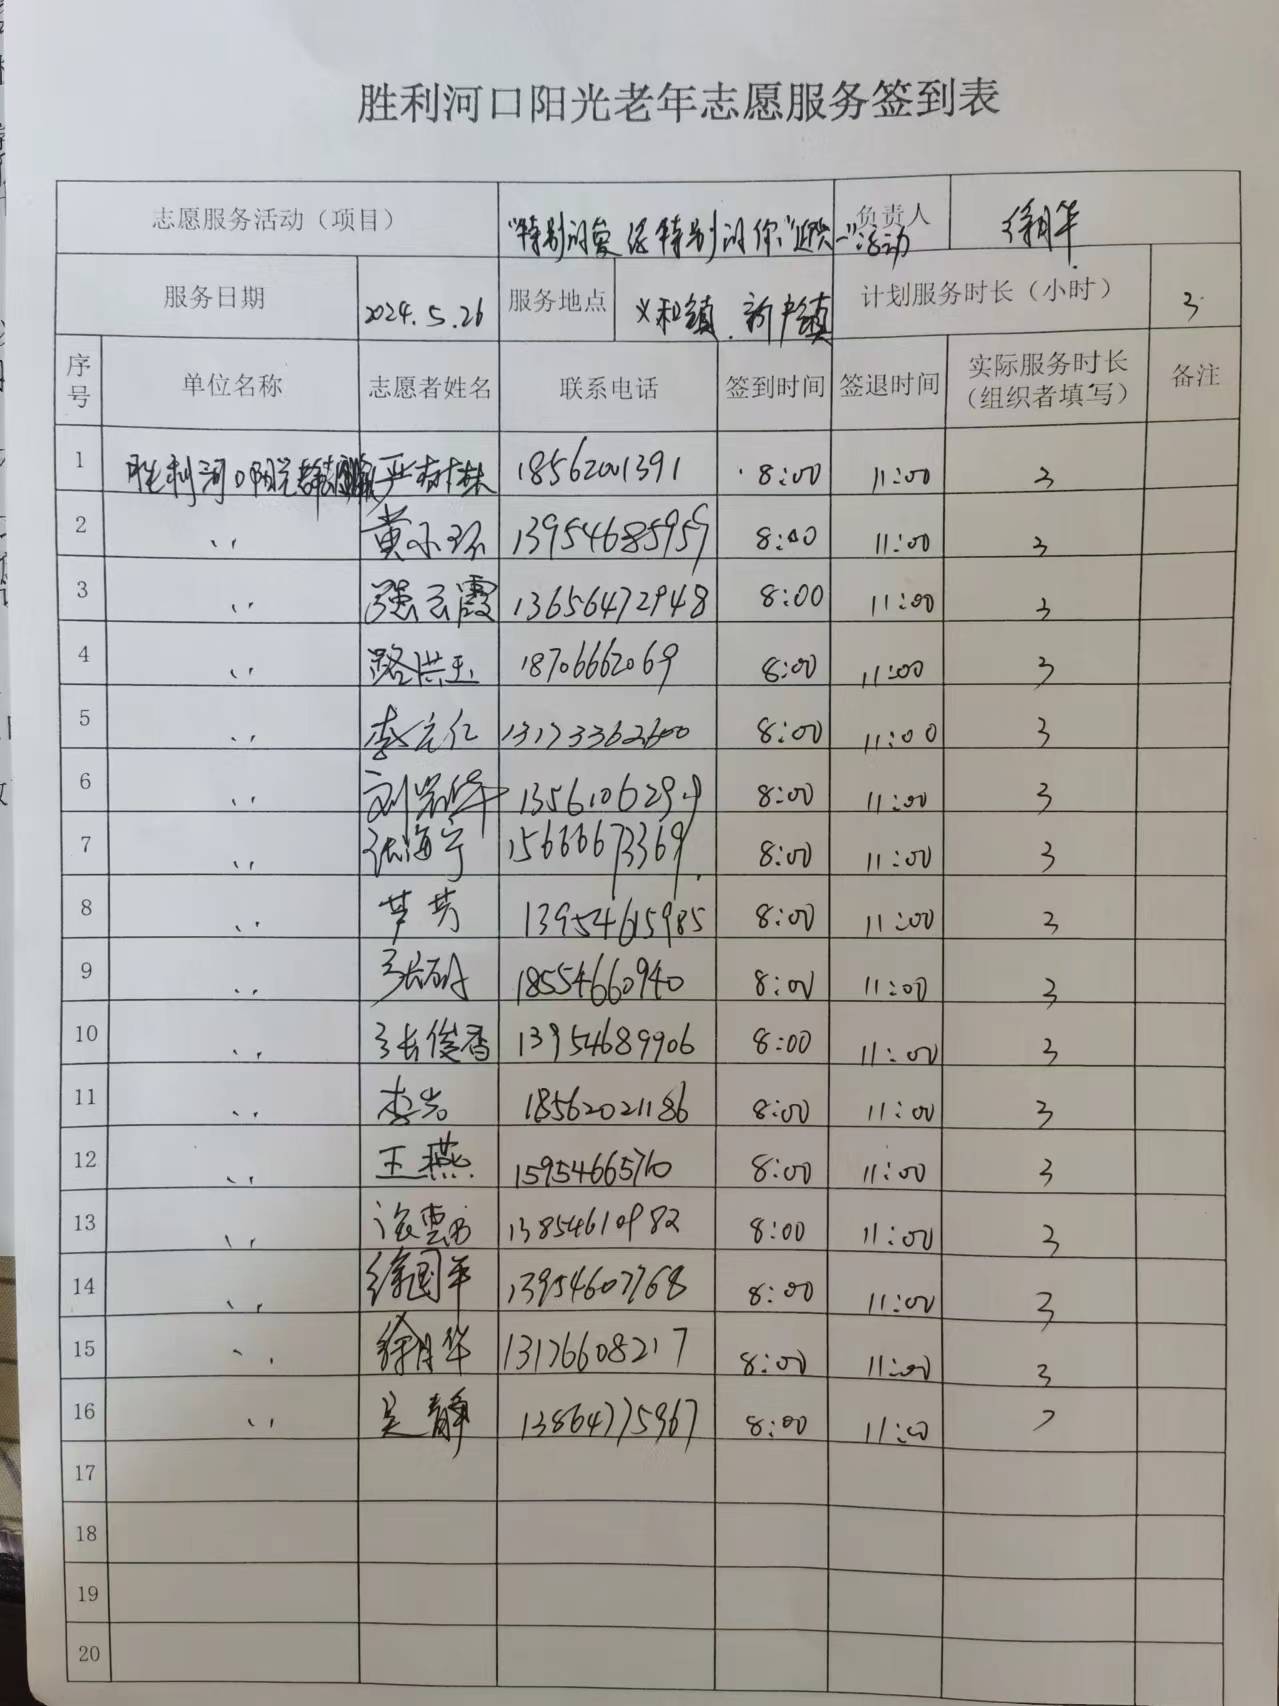 胜利河口阳光老年志愿服务签到表
志愿服务活动（项目） "特别的爱给特别的你" 活动 负责人 徐月华
服务日期 2024.5.26 服务地点 义和镇、新户镇 计划服务时长（小时） 3
序号 单位名称 志愿者姓名 联系电话 签到时间 签退时间 实际服务时长（组织者填写） 备注
1 胜利河口阳光 严树林 18562001391 8:00 11:00 3
2 〃 黄小环 13954685959 8:00 11:00 3
3 〃 强云霞 13656472948 8:00 11:00 3
4 〃 路洪玉 18706662069 8:00 11:00 3
5 〃 李元仁 13173362600 8:00 11:00 3
6 〃 刘岩华 1356106294 8:00 11:00 3
7 〃 张海宁 15666673369 8:00 11:00 3
8 〃 芦芳 13954615985 8:00 11:00 3
9 〃 张 18554660940 8:00 11:00 3
10 〃 张俊香 13954689906 8:00 11:00 3
11 〃 李岩 18562021186 8:00 11:00 3
12 〃 王燕 15954665710 8:00 11:00 3
13 〃 13854610982 8:00 11:00 3
14 〃 徐国平 13954607768 8:00 11:00 3
15 〃 徐月华 13176608217 8:00 11:00 3
16 〃 吴静 13864775967 8:00 11:00
17
18
19
20